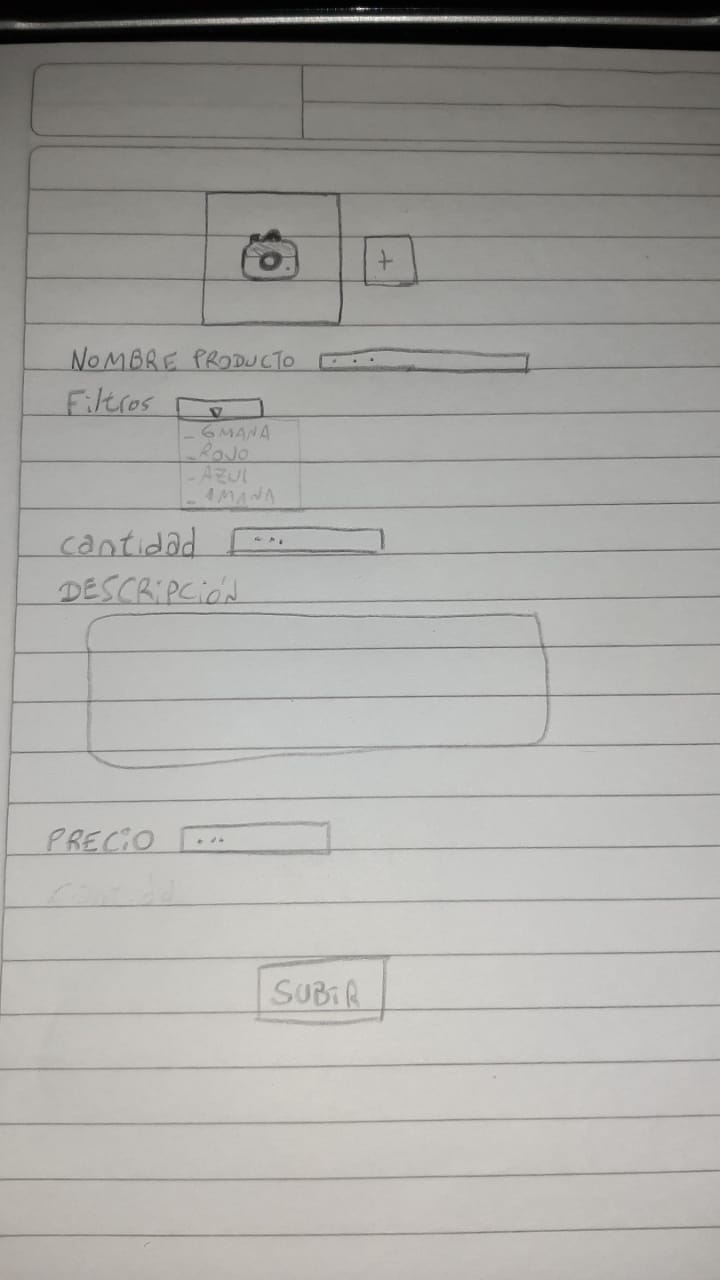 +
NOMBRE PRODUCTO ...
Filtros
- 6 MANA
- ROJO
- AZUL
- 1 MANA
cantidad ...
DESCRIPCIÓN
PRECIO ...
Cantidad
SUBIR